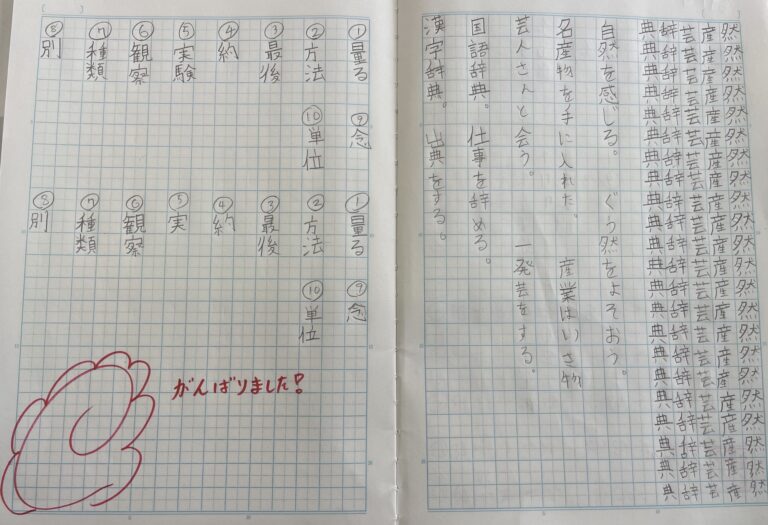 然然然然然然然然然然然然然然然然然然然然然然
産産産産産産産産産産産産産産産産産産産産産産
芸芸芸芸芸芸芸芸芸芸芸芸芸芸芸芸芸芸芸芸芸芸
辞辞辞辞辞辞辞辞辞辞辞辞辞辞辞辞辞辞辞辞辞辞
典典典典典典典典典典典典典典典典典典典典典典
自然を感じる。 ぐう然をよそおう。
名産物を手に入れた。 産業はいき物
芸人さんと会う。 一発芸をする。
国語辞典。 仕事を辞める。
漢字辞典。 出典をする。
①量る ⑨念
②方法 ⑩単位
③最後
④約
⑤実験
⑥観察
⑦種類
⑧別
①量る ⑨念
②方法 ⑩単位
③最後
④約
⑤実
⑥観察
⑦種類
⑧別
がんばりました!